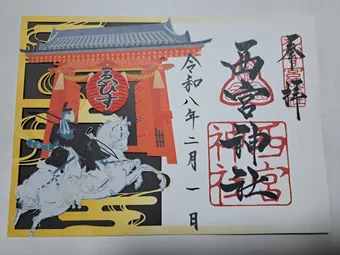 奉拝
西宮神社
西宮
神社
令和八年二月一日
ゑびす